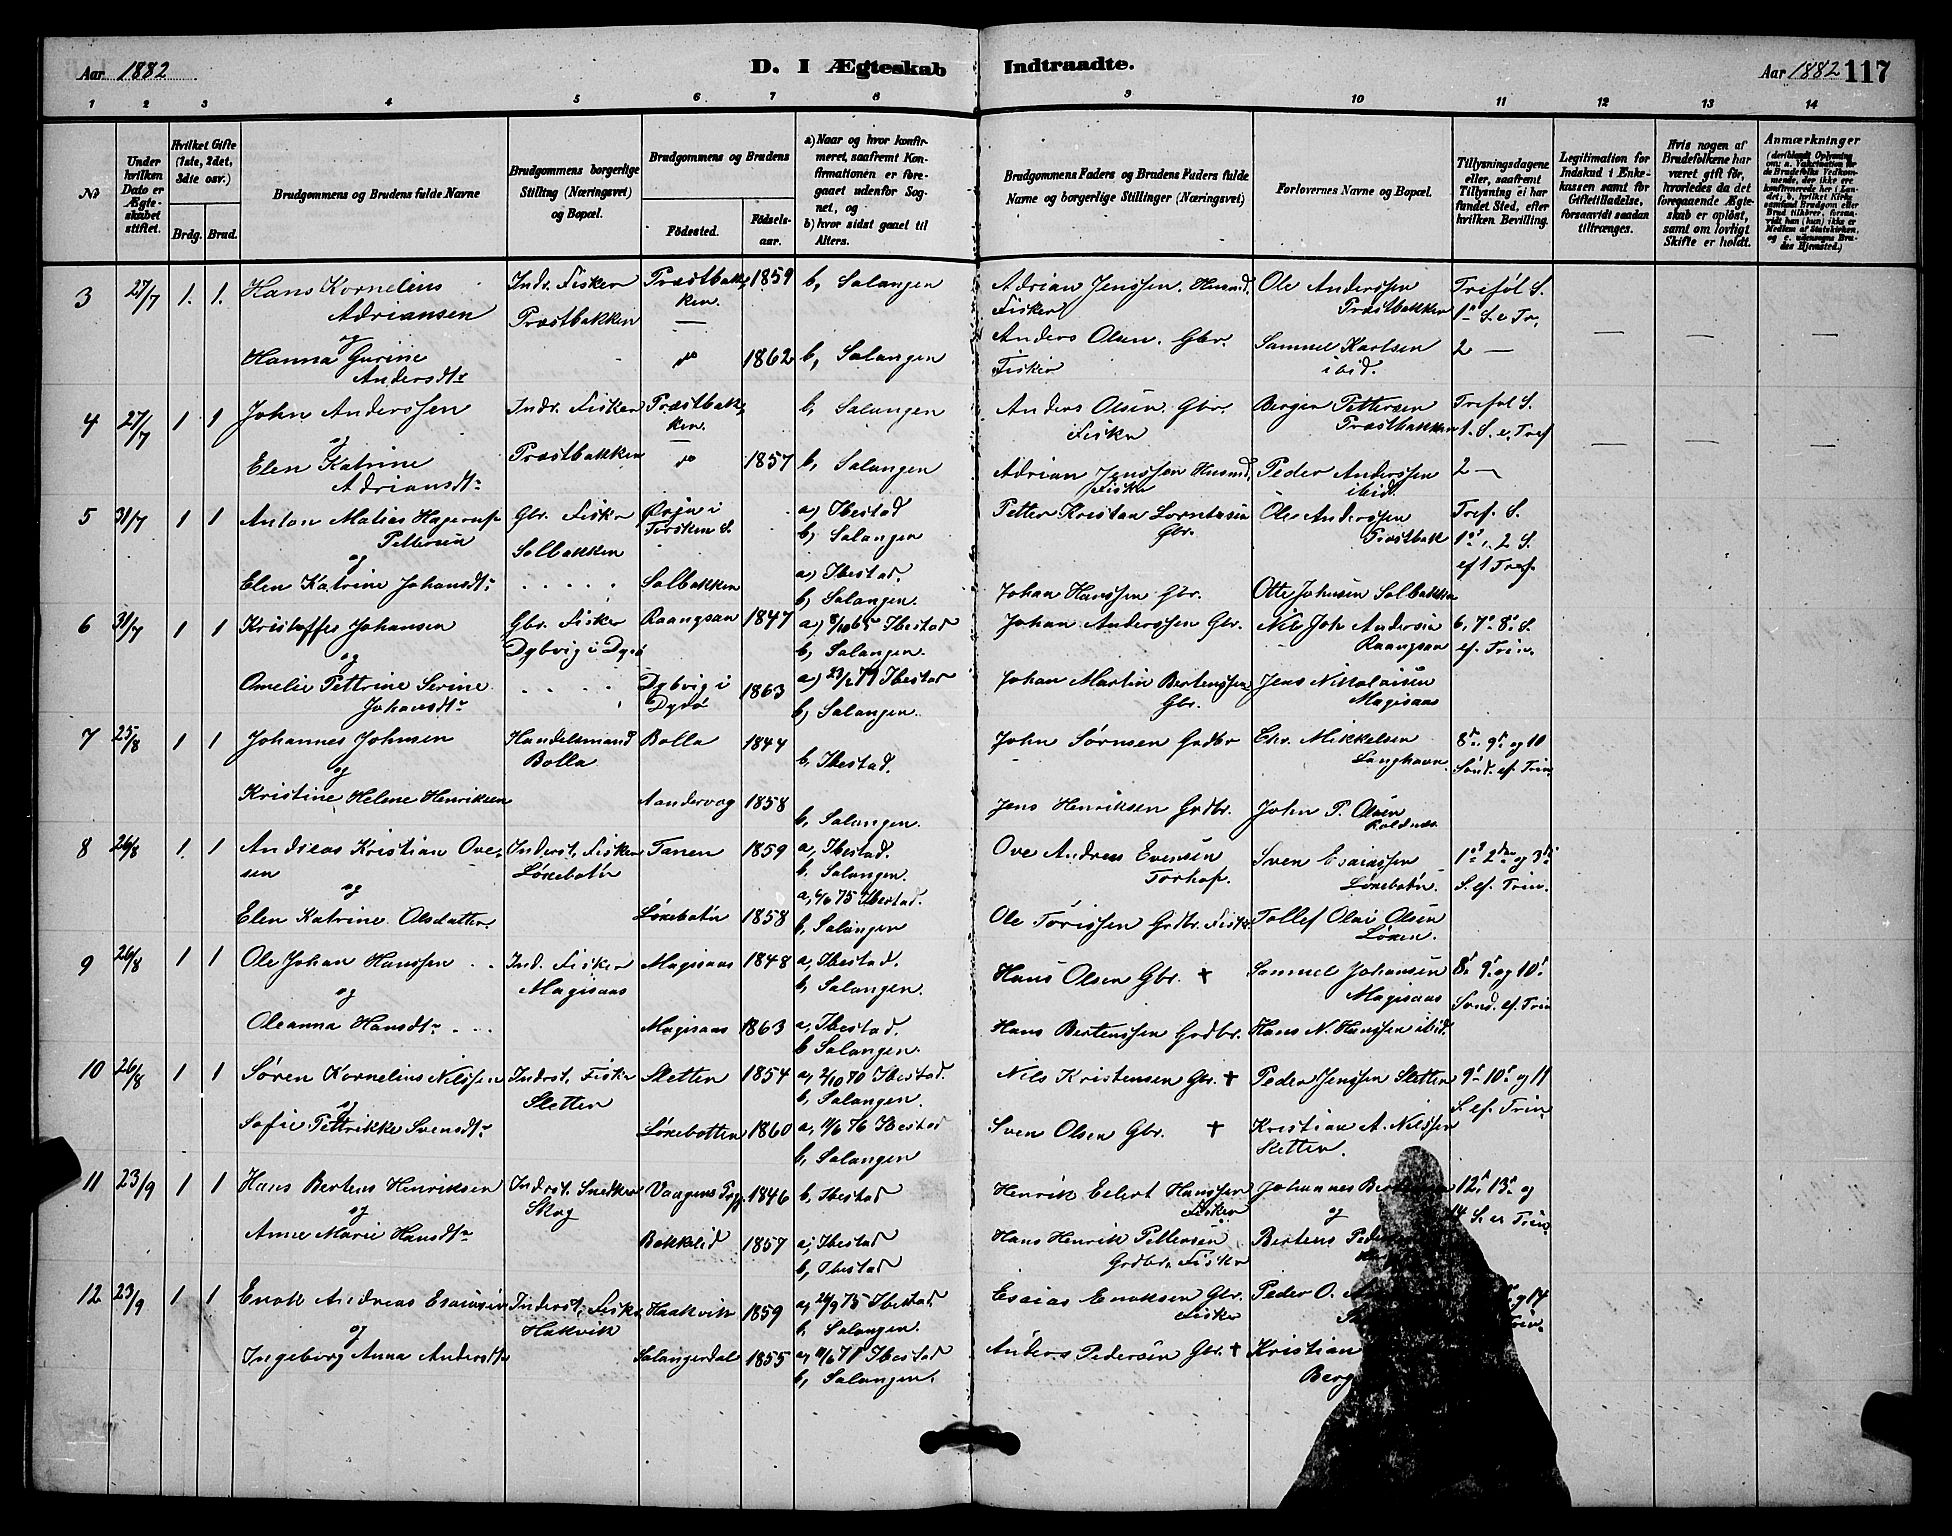 Aar 1882
D. I Ægteskab Indtraadte.
Aar 1882 117
1 2 3 4 5 6 7 8 9 10 11 12 13 14
No
Under hvilken Dato er Ægteskabet stiftet.
Hvilket Gifte (1ste, 2det, 3die osv.)
Brdg. Brud.
Brudgommens og Brudens fulde Navne
Brudgommens borgerlige Stilling (Næringsvei) og Bopæl.
Brudgommens og Brudens
Födested.
Födselsaar.
a) Naar og hvor konfirmeret, saafremt Konfirmationen er foregaaet udenfor Sognet, og
b) hvor sidst gaaet til Alters.
Brudgommens Faders og Brudens Faders fulde Navne og borgerlige Stillinger (Næringsvei)
Forlovernes Navne og Bopæl.
Tillysningsdagene eller, saafremt Tillysning ei har fundet Sted, efter hvilken Bevilling.
Legitimation for Indskud i Enkekassen samt for Giftetilladelse, forsaavidt saadan tiltrænges.
Hvis nogen af Brudefolkene har været gift för, hvorledes da det foregaaende Ægteskab er oplöst, samt om lovligt Skifte er holdt.
Anmærkninger
3 27/7 1. 1. Hans Kornelius Adriansen Inds. Fisker Præstbakken Præstbakken 1859 b, Salangen Adrian Jenssen. Husmd. Fisker Ole Anderssen Præstbakken Trefol S. 1ste S. e Tr.
og
Hanna Gurine Andersdtr 1862 b, Salangen Anders Olsen. Gbr. Fisker Samuel Karlsen ibid. 2 —
4 27/7 1 1 John Anderssen Inds. Fisker Præstbakken Præstbakken b, Salangen Anders Olsen Gbr. Fisker Berger Pettersen Præstbakken Trefol S. 1. S. e. Tref
og
Elen Katrine Adriansdtr 1857 b, Salangen Adrian Jenssen Husmd. Fisker Peder Anderssen ibid. 2 —
5 31/7 1 1 Anton Matias Hagerup Pettersen Gbr. Fisker Solbakken Torsken S. a) Ibestad b) Salangen Petter Kristan Gbr. Ole Anderssen Præstbak Tref. S. 1ste, 2 S. ef 1 Tref.
og
Elen Katrine Johansdtr Solbakken a) Ibestad. b) Salangen. Johan Hanssen Gbr. Otte Johnsen Solbakken
6 31/7 1 1 Kristoffer Johansen Gbr. Fisker Dybvig i Dyrö Raangsan 1847 a) 8/10 65 Ibestad b) Salangen. Johan Anderssen Gbr. Joh Andersen Raangsan 6, 7de 8de S. ef. Trin.
og
Amelie Pettrine Serine Johansdtr Dybvig i Dyrö 1863 a) Ibestad b) Salangen. Johan Martin Bertenssen Gbr. Jens Nikolaisen Magisaas
7 25/8 1 1 Johannes Johnsen Handelsmand Bolla Bolla 1844 b, Ibestad. John Sørnsen Grdbr Chr. Mikkelsen Langhavn 8de 9de og 10 Sønd. ef. Trin
og
Kristine Helene Henriksen Aandervag 1858 b, Salangen. Jens Henriksen Grdbr. John P. Olsen Roldnæs
8 26/8 1. 1 Andreas Kristian Ovesen Inderst. Fisker Løxebotn Tanen 1859 a, Ibestad. b, Salangen. Ove Andreas Evensen Sven Esaiassen Løxebotn. 1ste 2den og 3die S. ef. Trin.
og
Elen Katrine Olsdatter Løxebotn 1858 a, 75 Ibestad. b, Salangen Ole Torissen Grdbr. Fisker Tollef Olai Olsen Løxen.
9 26/8 1 1 Ole Johan Hanssen Ind. Fisker Magisaas Magisaas 1848 a, Ibestad. b, Salangen. Hans Olsen Gbr. † Samuel Johansen Magisaas 8de 9de og 10de Sønd. ef. Trin
og
Oleanna Hansdtr Magisaas 1863 a, Ibestad. b Salangen. Hans Bertenssen Grdbr. Hans N. Hanssen ibid.
10 26/8 1 1 Søren Kornelius Nilssen Inderst. Fisker Sletten Sletten 1854 a, 2/10 70 Ibestad. b, Salangen. Nils Kristensen Gbr. † Peder Jenssen Sletten 9de 10de og 11 S. ef. Trin
og
Sofie Pettrikke Svensdtr Løxebotten 1860 a, 76 Ibestad b, Salangen Sven Olsen Gbr. † Kristian A. Nilssen Sletten.
11 23/9 1 1 Hans Bertens Henriksen Inderst. Snedker Skog 1846 b, Ibestad Henrik Eilert Hanssen Fisker Johannes 12, 13de og 14 S. ef Trin.
og
Anne Marie Hansdtr Bakkelid 1857 a, Ibestad b, Ibestad Hans Henrik Pettersen Grdbr. Fisker og Bertens
12 23/9 1 1 Enok Andreas Esaiassen Inderst. Fisker Hakvik Haakvik 1859 a, 75 Ibestad b, Salangen. Esaias Enoksen Gbr. Fisker Peder O. og 14 Trin.
og
Ingeborg Anna Andersdtr Salangsdal 1855 a, 71 Ibestad b, Salangen. Anders Pedersen Gbr. † Kristian Berg